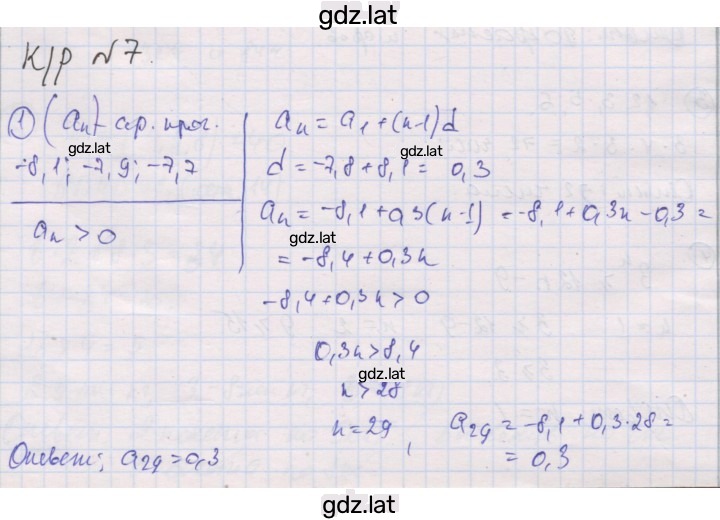 gdz.lat
К/р №7.
① (aₙ) - ар. прог.
gdz.lat
-8,1; -7,9; -7,7
aₙ > 0
aₙ = a₁ + (n-1)d
gdz.lat
d = -7,8 + 8,1 = 0,3
aₙ = -8,1 + 0,3(n-1) = -8,1 + 0,3n - 0,3 =
gdz.lat
= -8,4 + 0,3n
-8,4 + 0,3n > 0
0,3n > 8,4
gdz.lat
n > 28
n = 29, a₂₉ = -8,1 + 0,3·28 =
= 0,3
gdz.lat
Ответ: a₂₉ = 0,3
gdz.lat